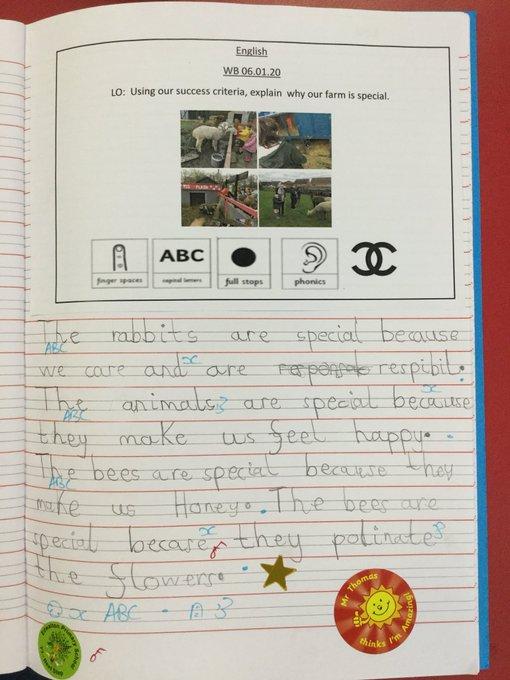 English
WB 06.01.20
LO: Using our success criteria, explain why our farm is special.
finger spaces
ABC
capital letters
full stops
phonics
The rabbits are special because
ABC
we care and are respibil.
The animals are special because
ABC
they make us feel happy.
The bees are special because they
ABC
make us Honey. The bees are
special becase they polinate
the flowers.
ABC
Mr Thomas
thinks I'm Amazing!